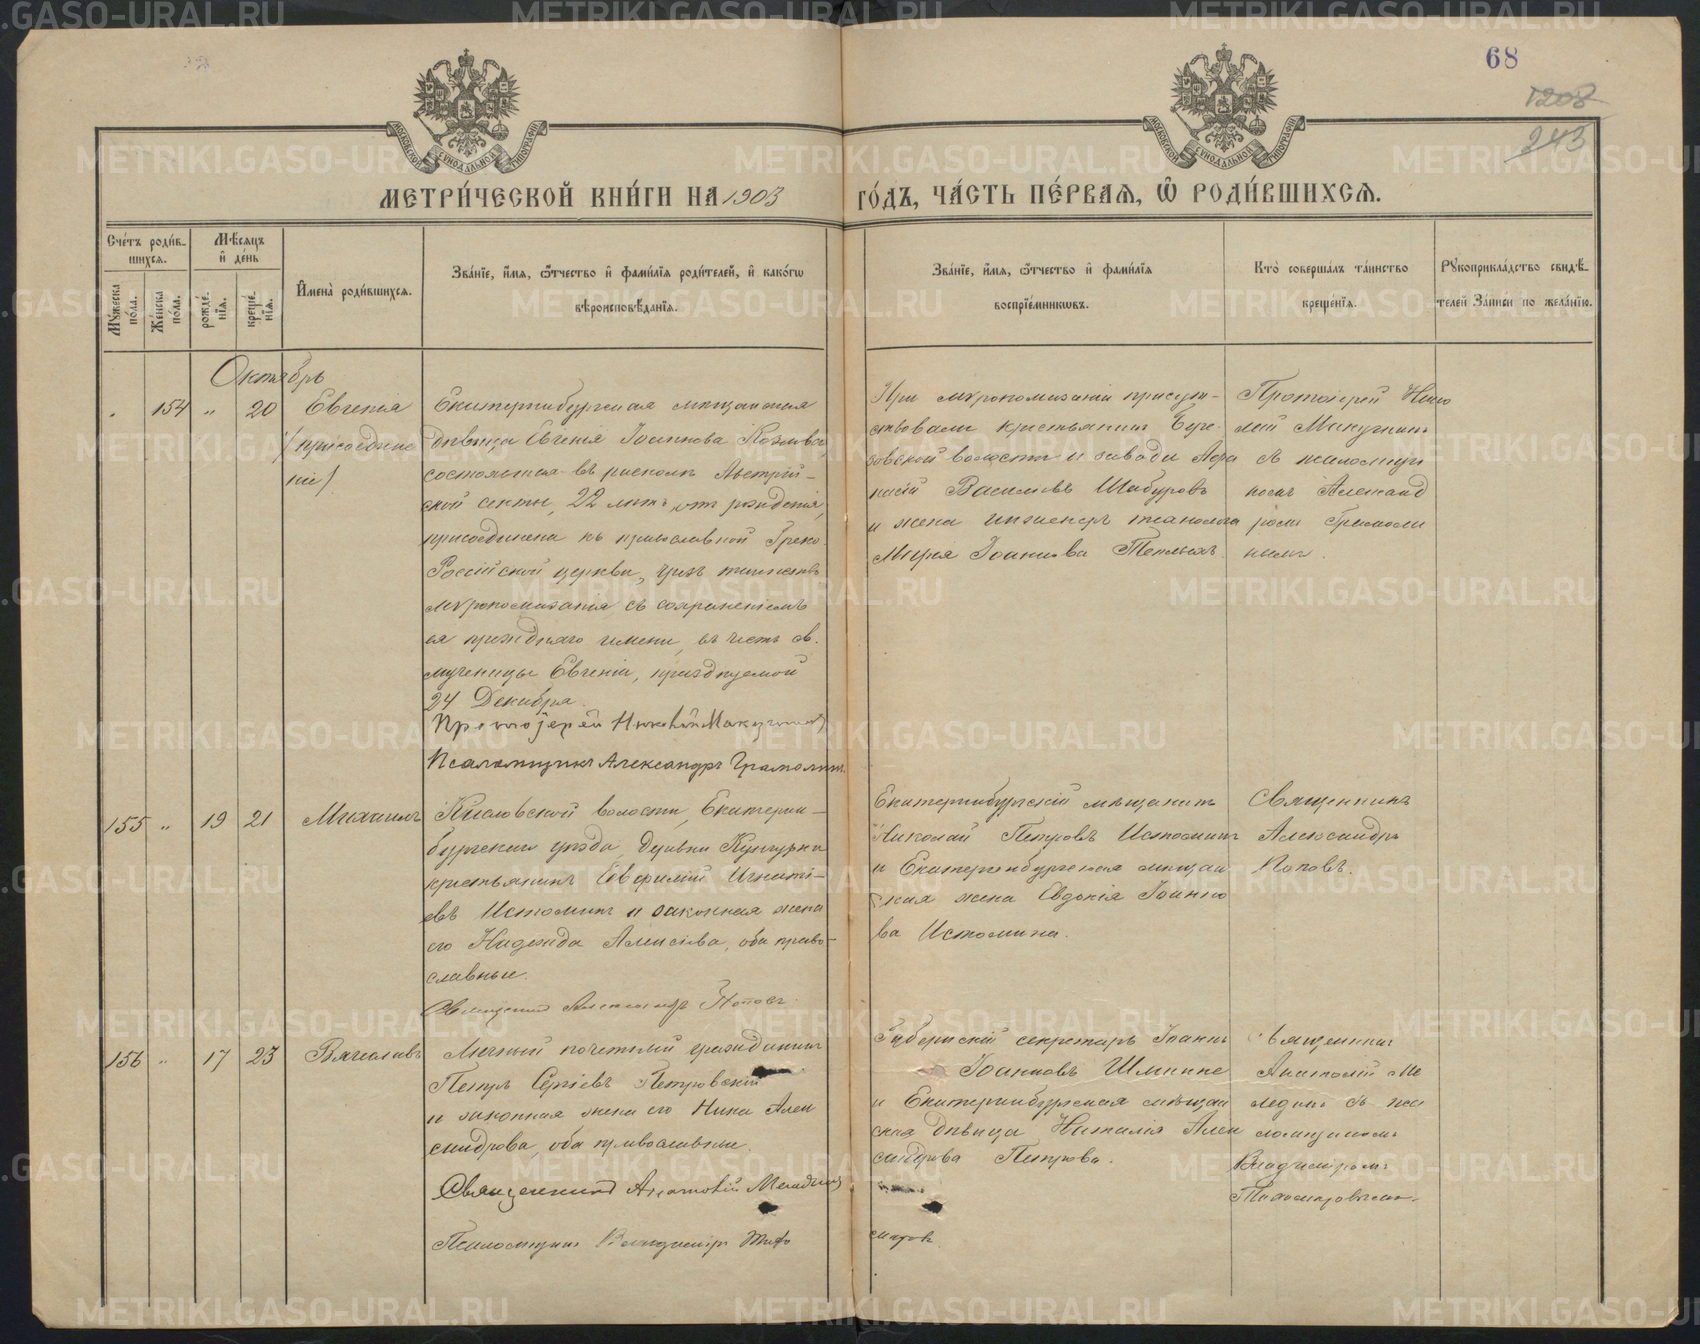 68
1208
243
МОСКОВСКОЙ СѴНОДАЛЬНОЙ ТИПОГРАФІИ
МОСКОВСКОЙ СѴНОДАЛЬНОЙ ТИПОГРАФІИ
МЕТРИ́ЧЕСКОЙ КНИ́ГИ НА 1903
ГО́ДЪ, ЧА́СТЬ ПЕ́РВАЯ, Ѡ РОДИ́ВШИХСЯ.
Сче́тъ роди́в-
шихся.
Мѣсяцъ
и де́нь
Му́жеска по́ла.
Же́нска по́ла.
рожде́нїя.
креще́нїя.
Имена̀ роди́вшихся.
Зва́нїе, и́мя, ѻ҆́тчество и фами́лїя роди́телей, и како́гѡ
вѣроисповѣ́данїя.
Зва́нїе, и́мя, ѻ҆́тчество и фами́лїя
воспрїе́мникѡвъ.
Кто̀ соверша́лъ та́инство
креще́нїя.
Рꙋкоприкла́дство свидѣ́-
телей за́писи по жела́нїю.
Октябрь
" 154 " 20 Евгенія
/присоедине
ніе/
Екатеринбургская мѣщанская
дѣвица Евгенія Іоаннова Козлова,
состоявшая въ расколѣ Австрій-
ской секты, 22 лѣтъ отъ рожденія,
присоединена къ православной Греко-
Россійской церкви, чрезъ таинство
мѵропомазанія съ сохраненіемъ
ея прежняго имени, въ честь св.
мученицы Евгеніи, празднуемой
24 Декабря.
Протоіерей Николай Макушинъ
Псаломщикъ Александръ Грамолинъ
При мѵропомазаніи присут-
ствовали крестьянинъ
волости и завода
Васильевъ Шабуровъ
и жена инженеръ технолога
Марія Іоаннова
Протоіерей Нико
лай Макушинъ
съ псаломщи
комъ Александ
ромъ Грамоли
нымъ.
155 " 19 21 Михаилъ
Кисловской волости, Екатерин-
бургскаго уѣзда деревни Кунгурки
крестьянинъ Евфимій Игнаті-
евъ Истоминъ и законная жена
его Надежда Алексіева, оба право-
славные.
Священникъ Александръ Поповъ.
Екатеринбургскій мѣщанинъ
Николай Петровъ Истоминъ
и Екатеринбургская мѣщан
ская жена Евдокія Іоанно
ва Истомина.
Священникъ
Александръ
Поповъ.
156 " 17 23 Вячеславъ
Личный почетный гражданинъ
Петръ Сергіевъ Петровскій
и законная жена его Нина Алек
сандрова, оба православные.
Священникъ Анатолій
Псаломщикъ Владиміръ Тихо
мировъ
Губернскій секретарь Іоаннъ
Іоанновъ
и Екатеринбургская мѣщан
ская дѣвица Наталія Алек
сандрова Петрова.
Священникъ
Анатолій
съ пса
ломщикомъ
Владиміромъ
Тихомировымъ.
METRIKI.GASO-URAL.RU